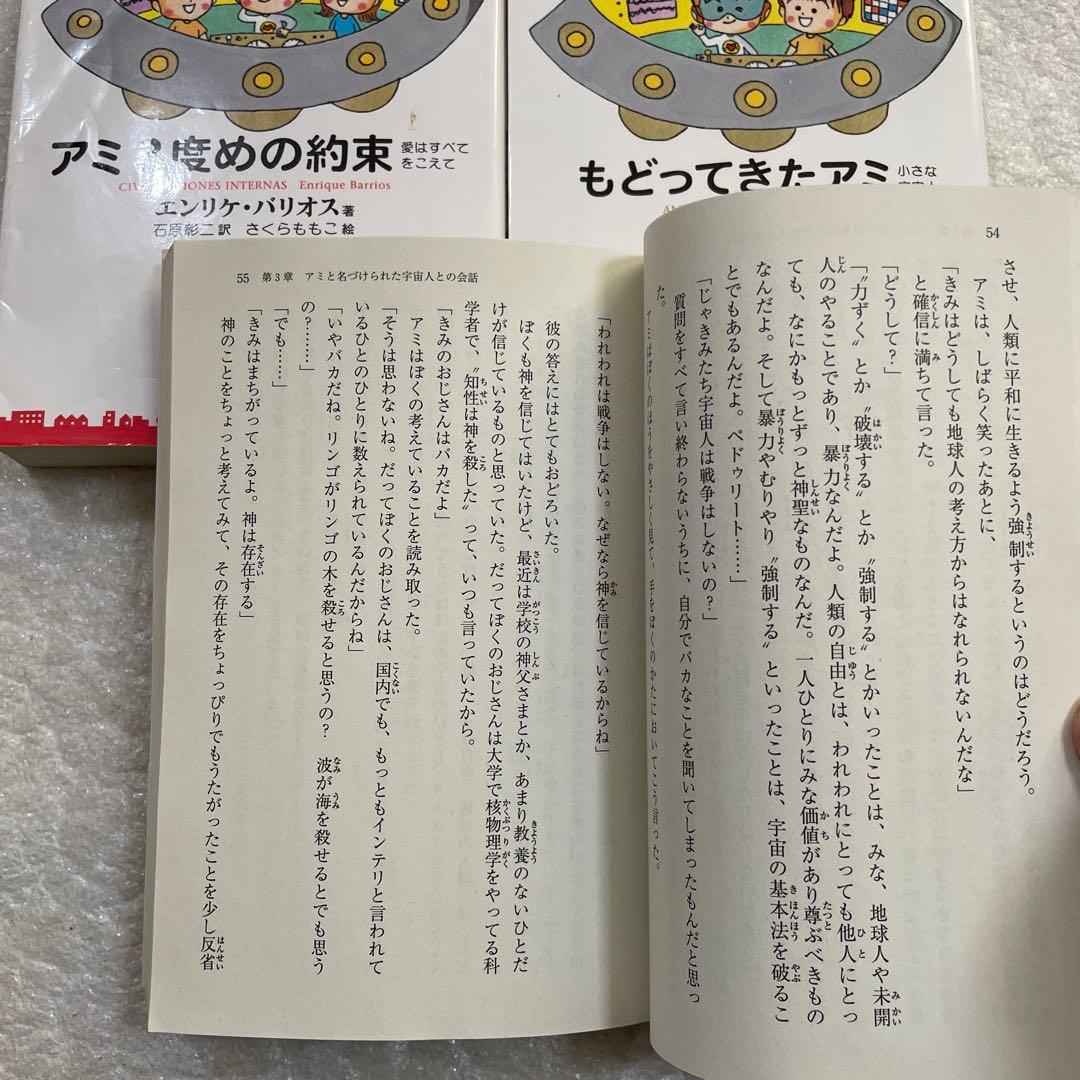 アミ 3度めの約束 愛はすべて
をこえて
Enrique Barrios
エンリケ・バリオス著
石原彰二 訳 さくらももこ 絵
もどってきたアミ 小さな
54
させ、人類に平和に生きるよう強制するというのはどうだろう。
アミは、しばらく笑ったあとに、
「きみはどうしても地球人の考え方からはなれられないんだな」
と確信に満ちて言った。
「どうして?」
「〝力ずく〟とか〝破壊する〟とか〝強制する〟とかいったことは、みな、地球人や未開
人のやることであり、暴力なんだよ。人類の自由とは、われわれにとっても他人にとっ
ても、なにかもっとずっと神聖なものなんだ。一人ひとりにみな価値があり尊ぶべきもの
なんだよ。そして暴力やむりやり〝強制する〟といったことは、宇宙の基本法を破るこ
とでもあるんだよ。ペドゥリート……」
「じゃきみたち宇宙人は戦争はしないの?」
質問をすべて言い終わらないうちに、自分でバカなことを聞いてしまったもんだと思っ
た。
アミはぼくのほうをやさしく見て、手をぼくのかたにおいてこう言った。
55 第3章 アミと名づけられた宇宙人との会話
「われわれは戦争はしない。なぜなら神を信じているからね」
彼の答えにはとてもおどろいた。
ぼくも神を信じてはいたけど、最近は学校の神父さまとか、あまり教養のないひとだ
けが信じているものと思っていた。だってぼくのおじさんは大学で核物理学をやってる科
学者で、〝知性は神を殺した〟って、いつも言っていたから。
「きみのおじさんはバカだよ」
アミはぼくの考えていることを読み取った。
「そうは思わないね。だってぼくのおじさんは、国内でも、もっともインテリと言われて
いるひとのひとりに数えられているんだからね」
「いやバカだね。リンゴがリンゴの木を殺せると思うの? 波が海を殺せるとでも思う
の?……」
「でも……」
「きみはまちがっているよ。神は存在する」
神のことをちょっと考えてみて、その存在をちょっぴりでもうたがったことを少し反省